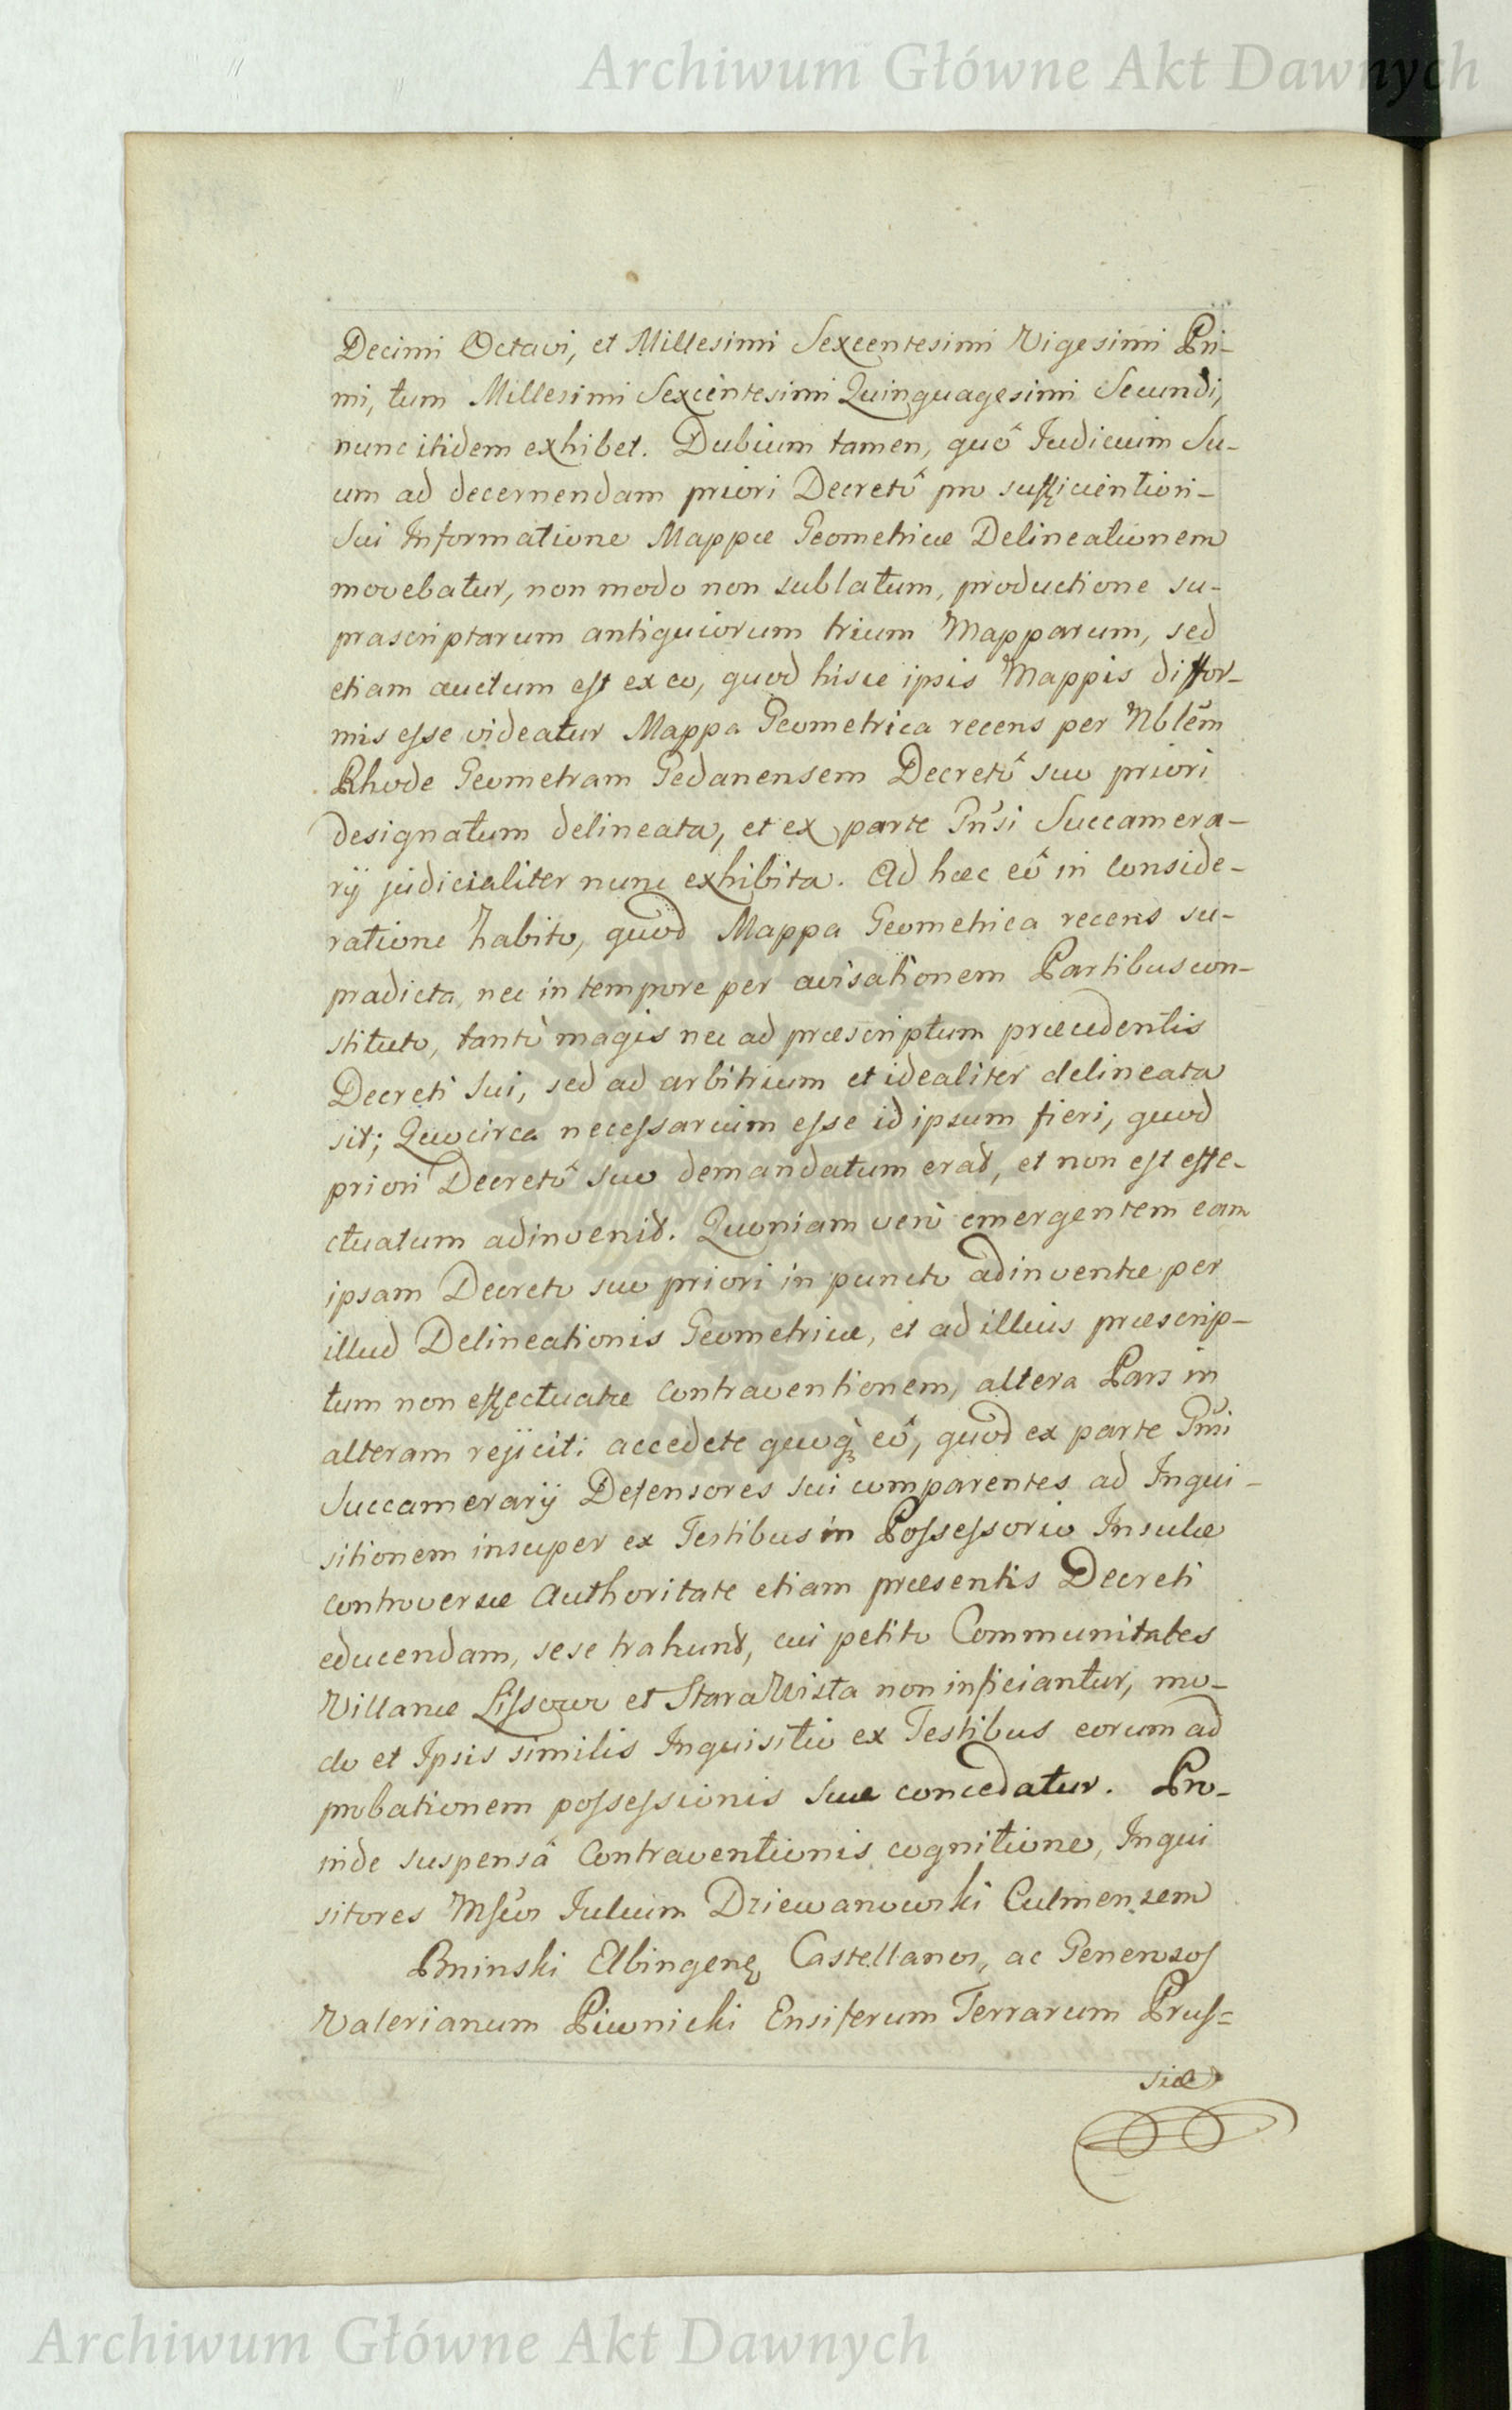 Archiwum Główne Akt Dawnych
Decimi Octavi, et Millesimi Sexcentesimi Vigesimi Pri-
mi, tum Millesimi Sexcentesimi Quinquagesimi Secundi,
nunc itidem exhibet. Dubium tamen, quô Judicium Su-
um ad decernendam priori Decretô pro sufficientiori
Sui Informatione Mappæ Geometricæ Delineationem
movebatur, non modo non sublatum, productione su-
prascriptarum antiquiorum trium Mapparum, sed
etiam auctum est ex eo, quod hisce ipsis Mappis diffor-
mis esse videatur Mappa Geometrica recens per Nblēm
Rhode Geometram Gedanensem Decretô suo priori
designatum delineata, et ex parte Gnsi Succamera-
rij judicialiter nunc exhibita. Ad hæc eô in conside-
ratione habito, quod Mappa Geometrica recens su-
pradicta, nec in tempore per avisationem Partibus con-
stituto, tantò magis nec ad præscriptum præcedentis
Decreti Sui, sed ad arbitrium et idealiter delineata
sit; Quocirca necessarium esse id ipsum fieri, quod
priori Decretô suo demandatum erat, et non est effe-
ctuatum adinvenit. Quoniam verò emergentem eam
ipsam Decreto suo priori in puncto adinventæ per
illud Delineationis Geometricæ, et ad illius præscrip-
tum non effectuatæ contraventionem, altera Pars in
alteram rejicit: accedete quoq́ eô, quod ex parte Gnsi
Succamerarij Defensores sui comparentes ad Inqui-
sitionem insuper ex Testibus in Possessorio Insulæ
controversæ Authoritate etiam præsentis Decreti
educendam, sese trahunt, cui petito Communitates
Villanæ Lissowo et Stara Wista non inficiantur, mo-
do et Ipsis similis Inquisitio ex Testibus eorum ad
probationem possessionis suæ concedatur. Pro-
inde suspensâ Contraventionis cognitione, Inqui
sitores Msicos Julium Dziewanowski Culmensem
Bninski Elbingenę Castellanos, ac Generosos
Valerianum Piwnicki Ensiferum Terrarum Prus=
siæ
Archiwum Główne Akt Dawnych